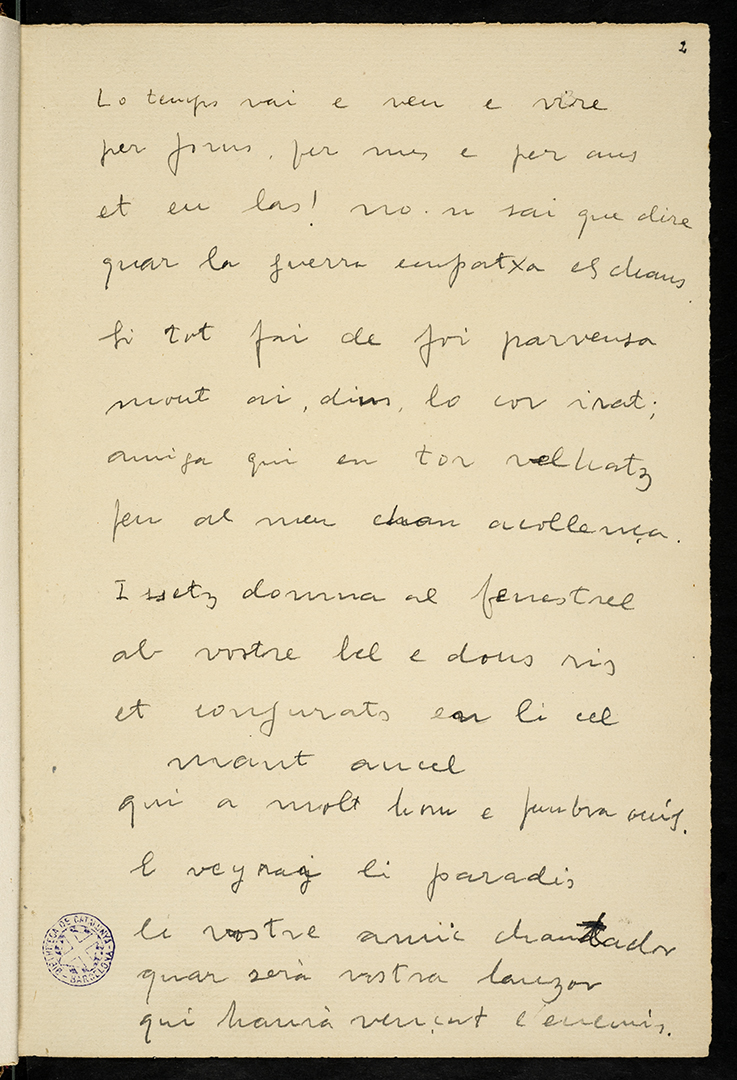 2
Lo temps vai e ven e vire
per jorns, per mes e per ans
et eu las! no·n sai que dire
quar la guerra empatxa els chans.
Si tot fai de joi parvensa
mout ai, dins, lo cor irat;
amiga qui en tor velhatz
feu al meu chan acollença.
Issetz domna al fenestrel
ab vostre bel e dous ris
et conjurats en li cel
mant aucel
qui a molt hom e
E veyrai li paradis
le vostre amic chantador
quar serà vostra lauzor
qui haurà vençut l'enemis.
BIBLIOTECA DE CATALUNYA - BARCELONA